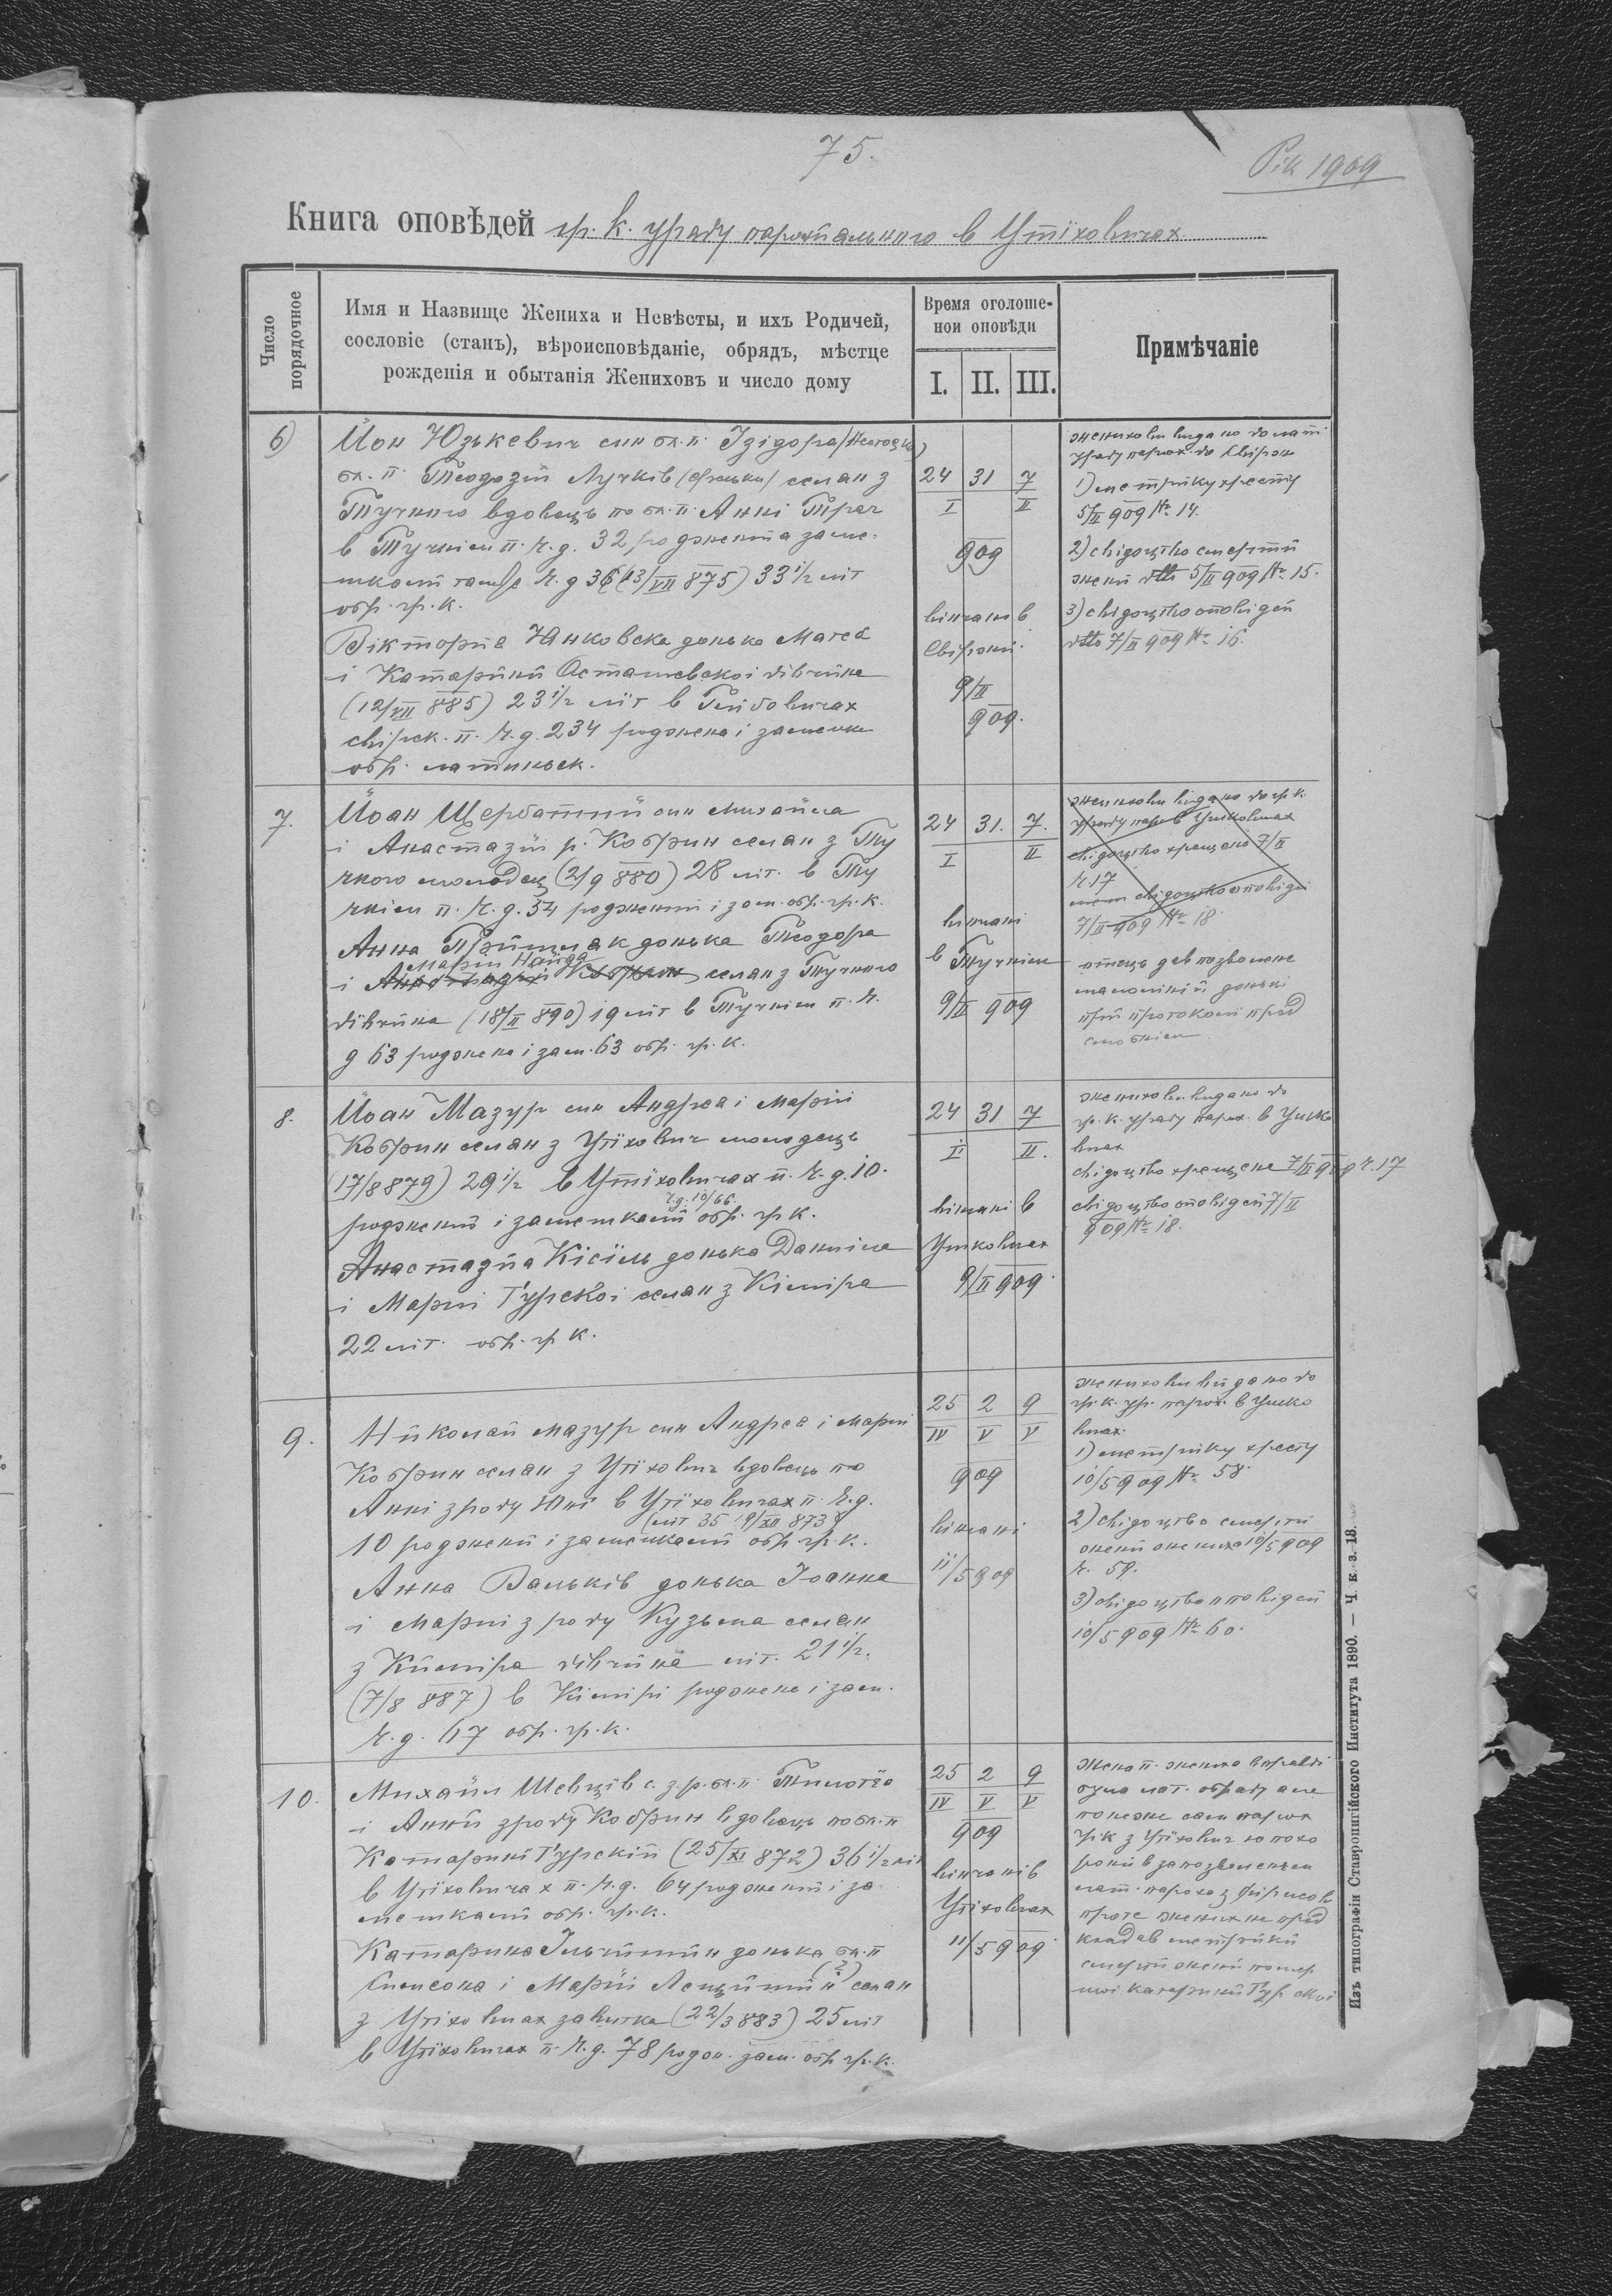 75.
Рік 1909
Книга оповѣдей гр. к. уряду парохіяльного в Утїховичах
Число порядочное
Имя и Назвище Жениха и Невѣсты, и ихъ Родичей,
сословіе (станъ), вѣроисповѣданіе, обрядъ, мѣстце
рожденія и обытанія Жениховъ и число дому
Время оголоше-
нои оповѣди
I. II. III.
Примѣчаніе
6)
Йон Юзькевич син бл. п. Ізідора
бл. п. Теодозїй Лучків селян з
Тучного вдовець по бл. п. Анні Ткач
в Тучнім п. ч. д. 32 родженый заме-
шкалий там ч. д 36 (13/VII 875) 33 1/2 літ
обр. гр. к.
Віктория Янковска донька Матея
і Катарини Осташевскої дівчина
(12/VII 885) 23 1/2 літ в
свірск. п. ч. д. 234 роджена і замешк
обр. латиньск.
24 31 7
I II
909
вінчані в
Свіржи
9/II
909.
женихови видано до лат.
уряду парох. до Свірж
1) метрику хресту
5/II 909 № 14.
2) свідоцтво смерти
жени dtto 5/II 909 № 15.
3) свідоцтво оповідей
dtto 7/II 909 № 16.
7.
Йоан Щербатий син Михайла
і Анастазїї р. Кобрин селян з Ту
чного молодец (2/9 880) 28 літ. в Ту
чнім п. ч. д. 54 роджений і зам. обр. гр. к.
Анна Пришляк донька Теодора
Мариї Найда
і Кобрин селян з Тучного
дівчина (18/II 890) 19 літ в Тучнім п. ч.
д 63 роджена і зам. 63 обр. гр. к.
24 31. 7.
I II
вінчані
в Тучнім
9/II 909
женихови видано до гр. к.
уряду пар. в Ушковичах
свідоцтво хрещеня 7/II
ч. 17
свідоцтво оповідей
7/II 909 № 18.
отець дав позволене
малолітній доньці
при протоколї пред
8.
Йоан Мазур син Андрея і Мариї
Кобрин селян з Утїхович молодець
(17/8 879) 29 1/2 в Утїховичах п. ч. д. 10.
ч. д. 10/66.
роджений і замешкалий обр. гр к.
Анастазия Кісїль донька Данила
і Мариї Гурскої селян з Кімира
22 літ. обр. гр к.
24 31 7
I II.
вінчані в
Ушковичах
9/II 909.
женихови видано до
гр. к. уряду парох. в Ушко
вичах
свідоцтво хрещеня 7/II 909 ч. 17
свідоцтво оповідей 7/II
909 № 18.
9.
Николай Мазур син Андрея і Мариї
Кобрин селян з Утїхович вдовець по
Анні з роду в Утїховичах п. ч. д.
(літ 35 19/XII 873)
10 роджений і замешкалий обр. гр. к.
Анна Вальків донька Іоанна
і Мариї з роду Кузьма селян
з Кимира дівчина літ. 21 1/2.
(7/8 887) в Кімирі роджена і зам.
ч. д. 67 обр. гр. к.
25 2 9
IV V V
909
вінчані
11/5 909
женихови видано до
гр. к. ур. парох. в Ушко
вичах.
1) метрику хресту
10/5 909 № 58.
2) свідоцтво смерти
жени жениха 10/5 909
ч. 59.
3) свідоцтво оповідей
10/5 909 № 60.
10.
Михайл Шевцїв с. з. р. бл. п. Тимотея
і Анни з роду Кобрин вдовець по бл. п
Катарині Гурскій (25/XI 872) 36 1/2 літ
в Утїховичах п. ч. д. 64 роджений і за-
мешкалий обр. гр. к.
Катарина Ільчишин донька бл. п
Симеона і Мариї Лещишин (?) селян
з Утїхович завитка (22/3 883) 25 літ
в Утїховичах п. ч. д. 78 родж. зам. обр гр. к.
25 2 9
IV V V
909
вінчані в
Утїховичах
11/5 909
Жена п. жениха вправдї
була лат. обряду але
понеже сам парох
гр к з Утїхович ю похо
ронив за позволенєм
лат. пароха з
проте жених не пред
кладав метрики
смерти жени помер
шої Катерини Гурскої
Изъ типографіи Ставропигійского Института 1890. — Ч. к. з. 18.